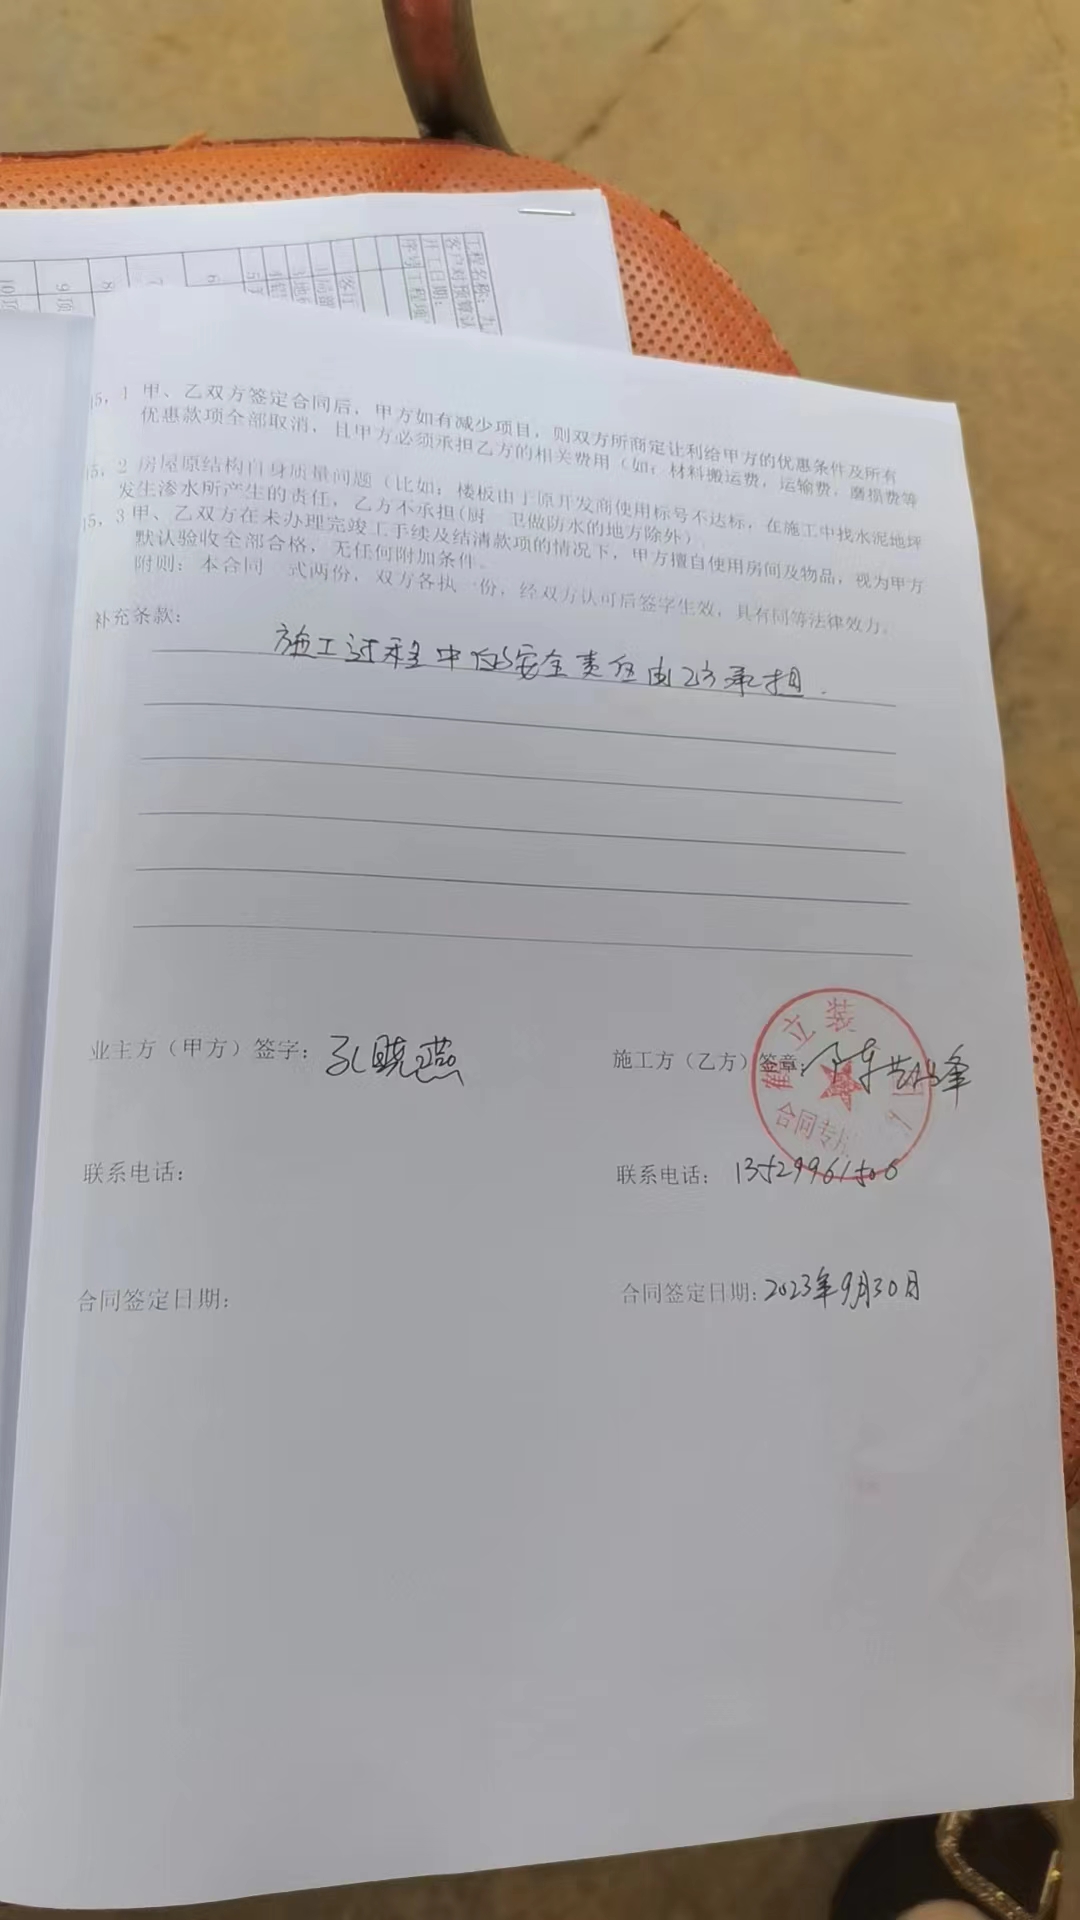 工程名称：九
客户对预算认
开工日期：
序号 工程项
客厅
5
6
7
8
9 项
10
15，1 甲、乙双方签定合同后，甲方如有减少项目，则双方所商定让利给甲方的优惠条件及所有
优惠款项全部取消，且甲方必须承担乙方的相关费用（如：材料搬运费，运输费，磨损费等
15，2 房屋原结构自身质量问题（比如：楼板由于原开发商使用标号不达标，在施工中找水泥地坪
发生渗水所产生的责任，乙方不承担(厨 卫做防水的地方除外）
15，3 甲、乙双方在未办理完竣工手续及结清款项的情况下，甲方擅自使用房间及物品，视为甲方
默认验收全部合格，无任何附加条件。
附则：本合同一式两份，双方各执一份，经双方认可后签字生效，具有同等法律效力。
补充条款：
施工过程中的安全责任由乙方承担.
业主方（甲方）签字：孔晓燕
施工方（乙方）签章：
立装
合同专用
联系电话：
联系电话：13529961506
合同签定日期：
合同签定日期：2023年9月30日